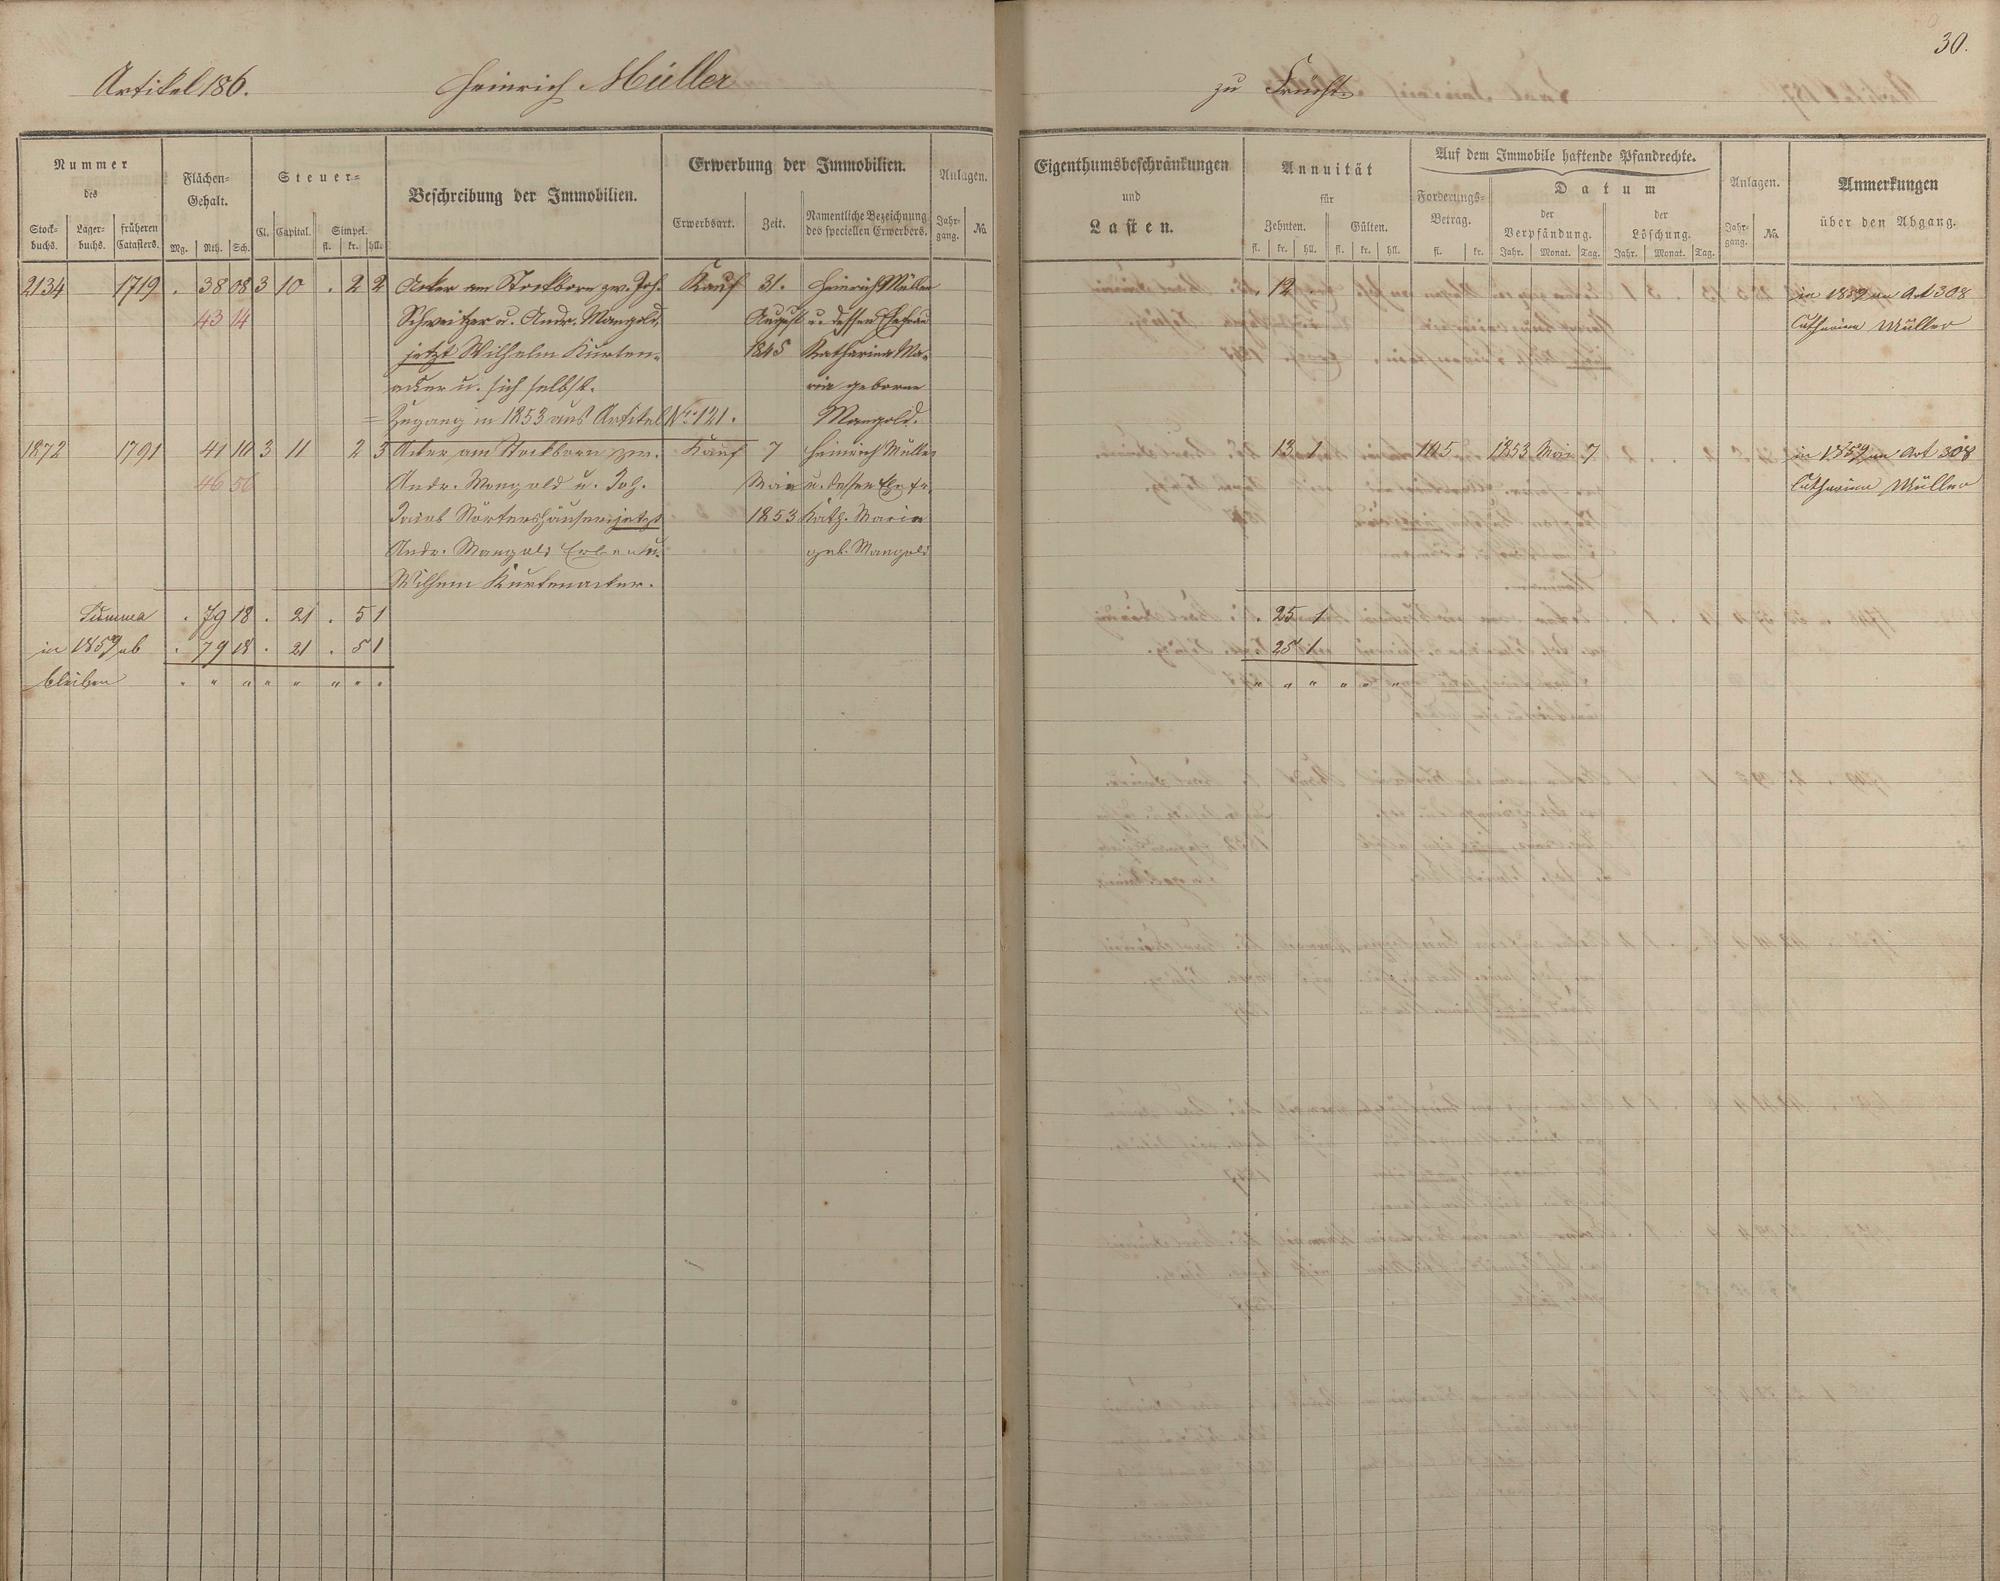 30.
Artikel 186. Heinrich Müller zu Frücht
Nummer des
Stock-buchs. Lager-buchs. früheren Catasters.
Flächen-Gehalt.
Mg. Rth. Sch.
Steuer-
Cl. Capital. Simpel.
fl. kr. hll.
Beschreibung der Immobilien.
Erwerbung der Immobilien.
Erwerbsart. Zeit. Namentliche Bezeichnung des speciellen Erwerbers.
Anlagen.
Jahr-gang. No.
Eigenthumsbeschränkungen
und
Lasten.
Annuität
für
Zehnten. Gülten.
fl. kr. hll. fl. kr. hll.
Auf dem Immobile haftende Pfandrechte.
Forderungs-Betrag.
fl. kr.
Datum
der Verpfändung. der Löschung.
Jahr. Monat. Tag. Jahr. Monat. Tag.
Anlagen.
Jahr-gang. No.
Anmerkungen
über den Abgang.
2134 1719 . 38 08 3 10 . 2 2 Acker am Stockborn zw. Joh. Kauf 31. Heinrich Müller . 12 in 1859 an Art 308
43 14 Schweitzer u. Andr. Mangold, August u. dessen Ehefrau Catharina Müller
jetzt Wilhelm Kurten- 1845 Katharina Ma-
acker u. sich selbst. ria geborne
= Zugang in 1853 aus Artikel No. 121. Mangold.
1872 1791 41 10 3 11 2 3 Acker am Stockborn zw. Kauf 7 Heinrich Müller 13 1 105 1853 Mai 7 in 1859 an Art 308
46 56 Andr. Mangold u. Joh. Mai u. dessen Ehefr. Catharina Müller
Jacob Störtershäuser jetzt 1853 Kath. Maria
Andr. Mangold Erben u. geb. Mangold
Wilhem Kurtenacker.
Summa . 79 18 . 21 . 5 1 . 25 1
in 1859 ab . 79 18 . 21 . 5 1 25 1
bleiben " " " " " " " " " " " " " "